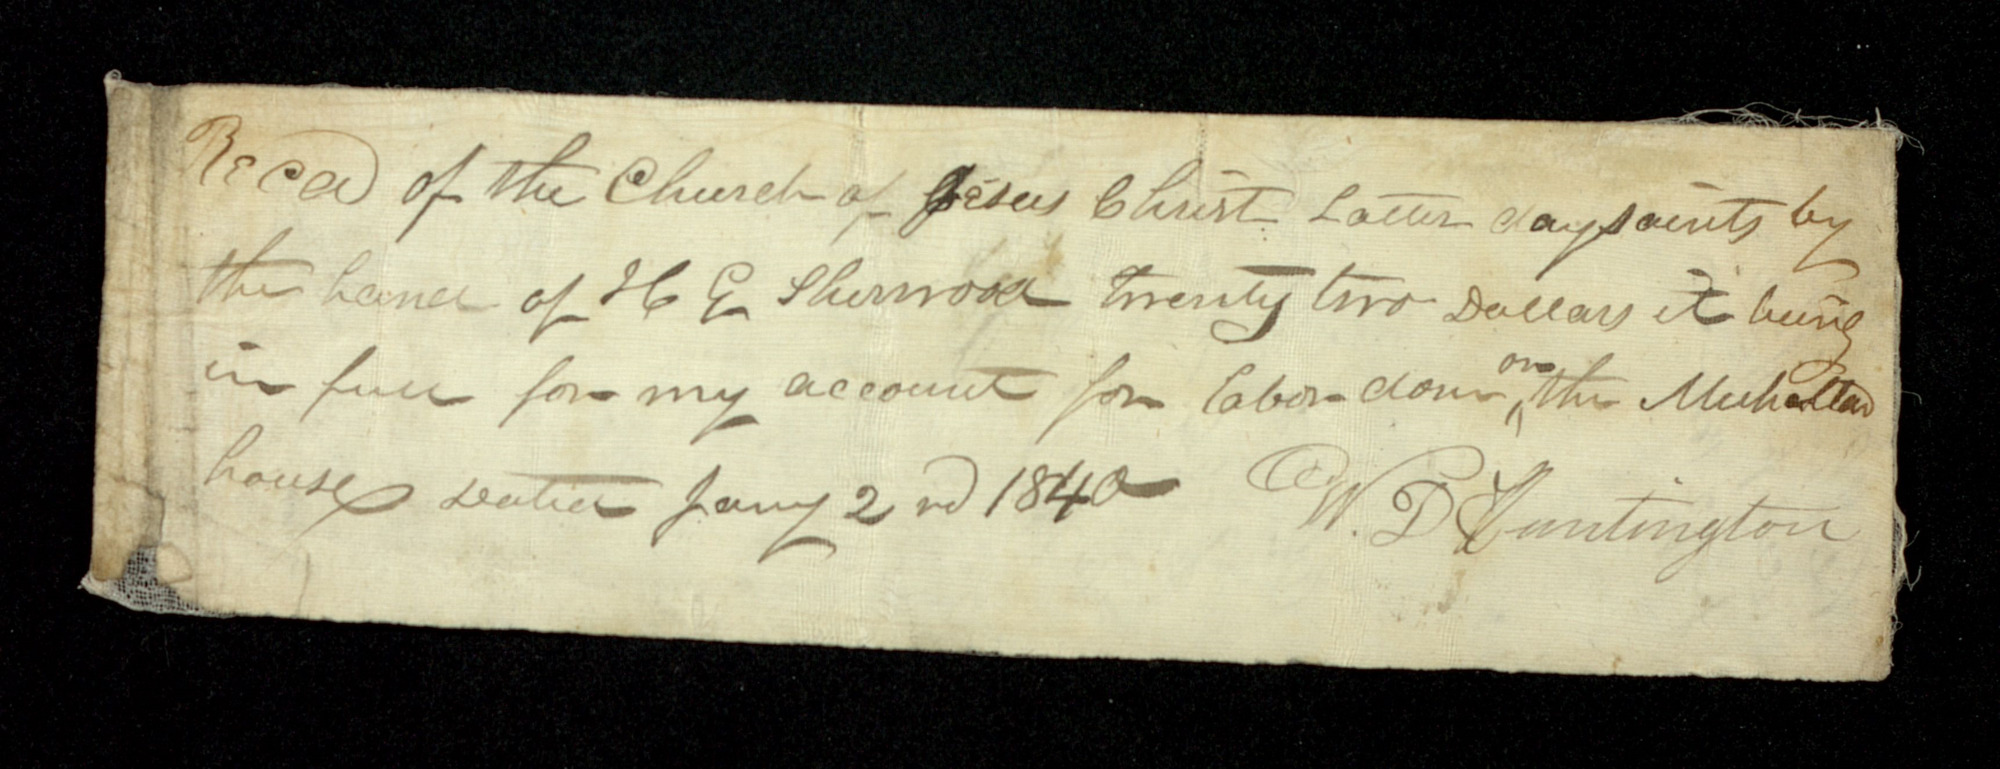 Recd of the Church of Jesus Christ Latter day saints by
the hand of H G Sherwood twenty two Dollars it being
in full for my account for labor down on the
house dated Jany 2nd 1840 W. D Huntington